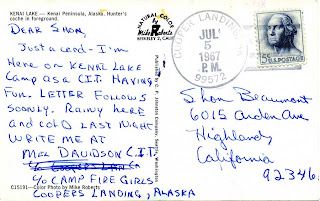 KENAI LAKE — Kenai Peninsula, Alaska. Hunter's
cache in foreground.
DEAR SHON,
JUST A CARD - I'M
HERE ON KENAI LAKE
CAMP AS A C.I.T. HAVING
FUN. LETTER FOLLOWS
SOONLY. RAINY HERE
AND COLD LAST NIGHT
WRITE ME AT
MEL DAVIDSON C.I.T.
C/O CAMP FIRE GIRLS
COOPERS LANDING, ALASKA
C15191—Color Photo by Mike Roberts
NATURAL COLOR
Mike
Roberts
BERKELEY 2, CALIF.
COOPER LANDING
JUL
5
1967
P.M.
99572
5¢
Shon Beaumont
6015 Arden Ave
Highland,
California
92346